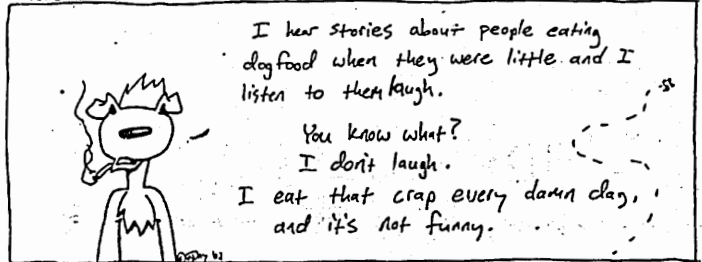 I hear stories about people eating
dogfood when they were little and I
listen to them laugh.
You know what?
I don't laugh.
I eat that crap every damn day,
and it's not funny.